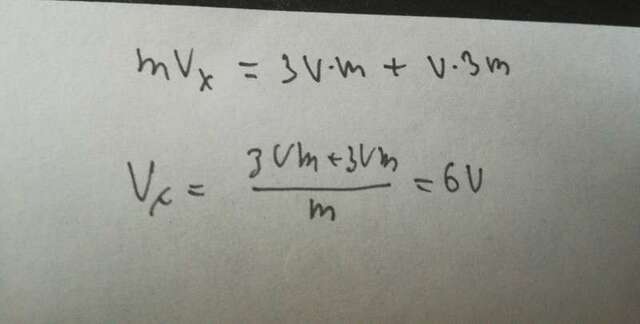 mVₓ = 3V·m + V·3m
Vₓ = (3Vm+3Vm)/m = 6V